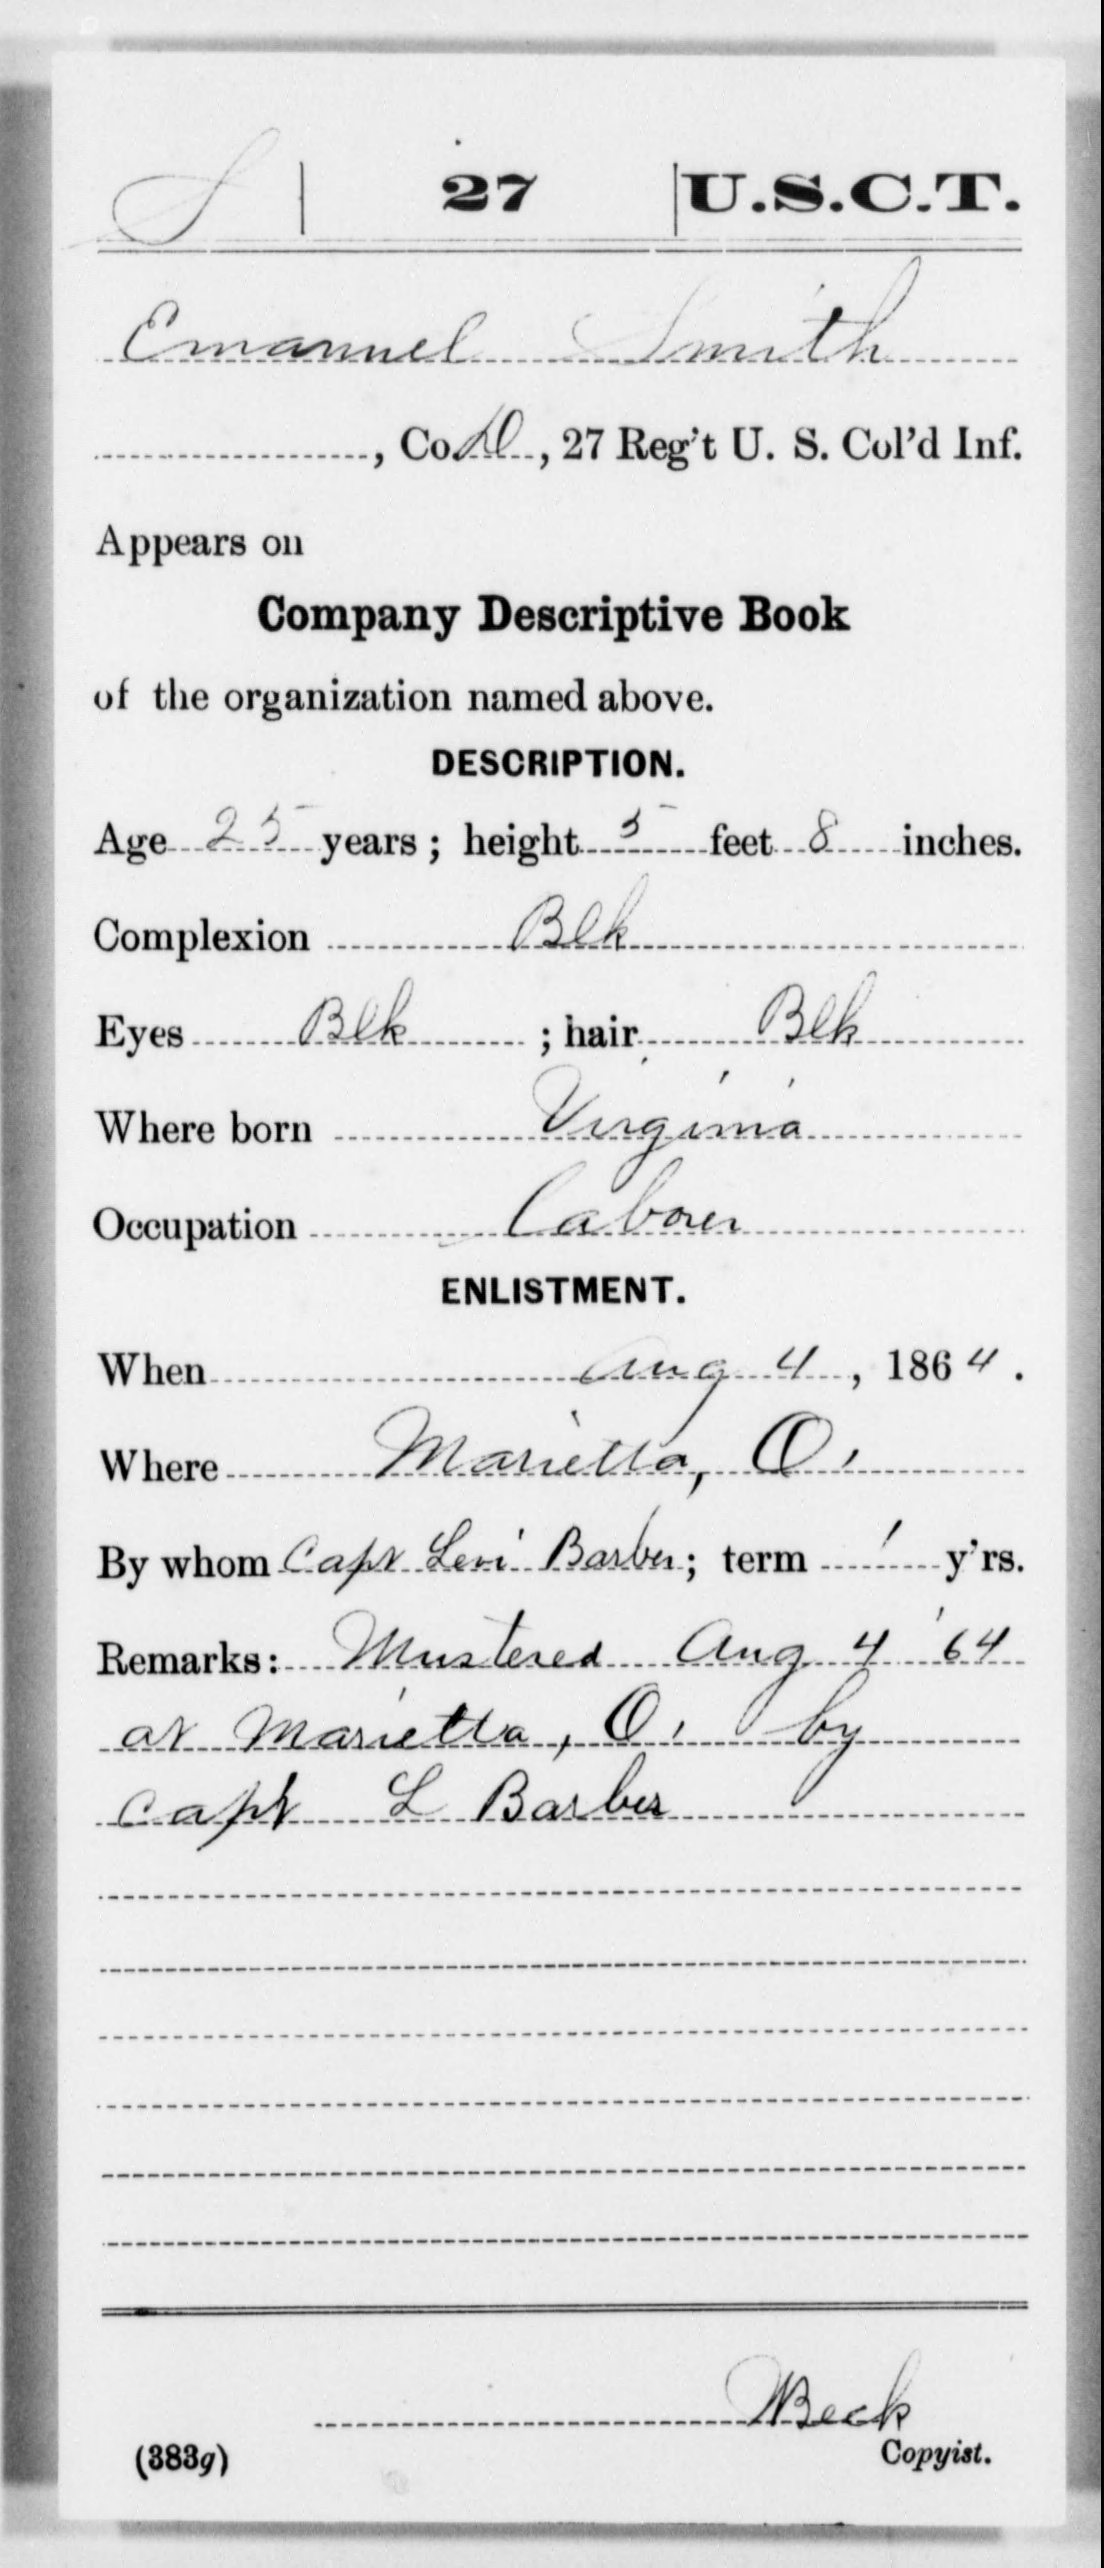 S | 27 | U.S.C.T.
Emanuel Smith
, Co. D, 27 Reg't U. S. Col'd Inf.
Appears on
Company Descriptive Book
of the organization named above.
DESCRIPTION.
Age 25 years; height 5 feet 8 inches.
Complexion Blk
Eyes Blk ; hair Blk
Where born Virginia
Occupation Laborer
ENLISTMENT.
When Aug 4, 1864.
Where Marietta, O.
By whom Capt Levi Barber; term 1 y'rs.
Remarks: Mustered Aug 4 '64
at Marietta, O. by
Capt L Barber
Beck
(383g) Copyist.